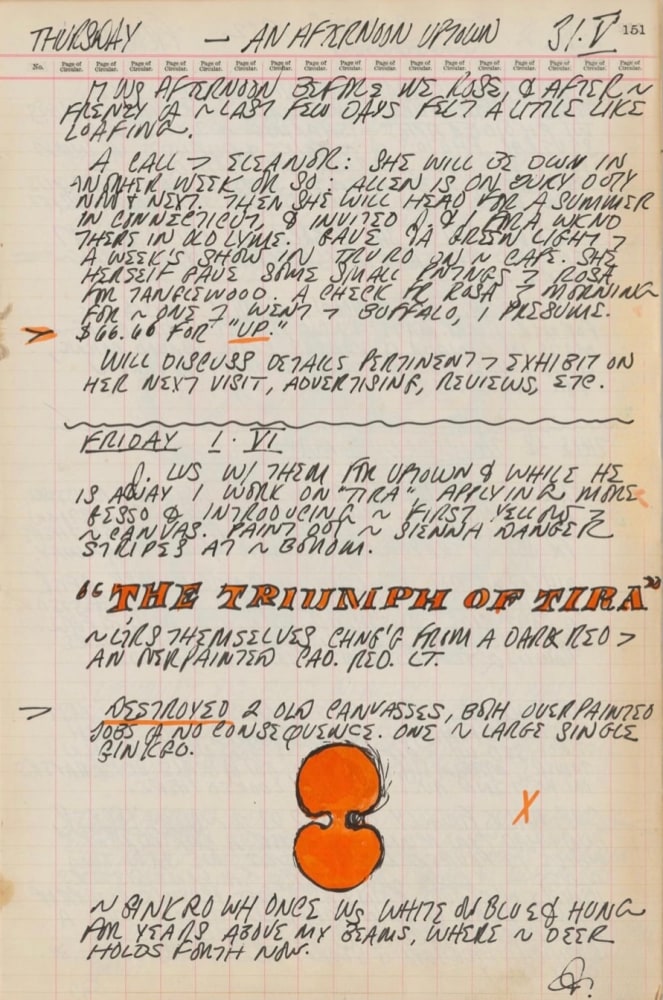 THURSDAY — AN AFTERNOON UPTOWN 31.V 151
No. Page of Circular. Page of Circular. Page of Circular. Page of Circular. Page of Circular. Page of Circular. Page of Circular. Page of Circular. Page of Circular. Page of Circular. Page of Circular. Page of Circular. Page of Circular. Page of Circular. Page of Circular. Page of Circular. Page of Circular.
WS AFTERNOON BEFORE WE ROSE, & AFTER ~
FRENZY ~ LAST FEW DAYS FELT A LITTLE LIKE
LOAFING.
A CALL > ELEANOR: SHE WILL BE DOWN IN
ANOTHER WEEK OR SO: ALLEN IS ON JURY DUTY
NOW & NEXT. THEN SHE WILL HEAD FOR A SUMMER
IN CONNECTICUT, & INVITED J. & I FOR A WKND
THERE IN OLD LYME. GAVE A GREEN LIGHT >
A WEEK'S SHOW IN TRURO ON ~ CAPE. SHE
HERSELF GAVE SOME SMALL PNTNGS > ROSA
FOR TANGLEWOOD. A CHECK FR ROSA > MORNING
FOR ~ ONE > WENT > BUFFALO, I PRESUME.
> $66.66 FOR "UP."
WILL DISCUSS DETAILS PERTINENT > EXHIBIT ON
HER NEXT VISIT, ADVERTISING, REVIEWS, ETC.
FRIDAY 1.VI
J. WS W/ THEM FOR UPTOWN & WHILE HE
IS AWAY I WORK ON "TIRA" APPLYING MORE
GESSO & INTRODUCING ~ FIRST YELLOWS >
~ CANVAS. PAINT OUT ~ SIENNA DANGER
STRIPES AT ~ BOTTOM.
"THE TRIUMPH OF TIRA"
~ LTRS THEMSELVES CHNG'G FROM A DARK RED >
AN OVERPAINTED CAD. RED. LT.
> DESTROYED 2 OLD CANVASSES, BOTH OVERPAINTED
JOBS NO CONSEQUENCE. ONE ~ LARGE SINGLE
GINKGO.
X
~ GINKGO WH ONCE WS WHITE ON BLUE & HUNG
FOR YEARS ABOVE MY BEAMS, WHERE ~ DEER
HOLDS FORTH NOW.